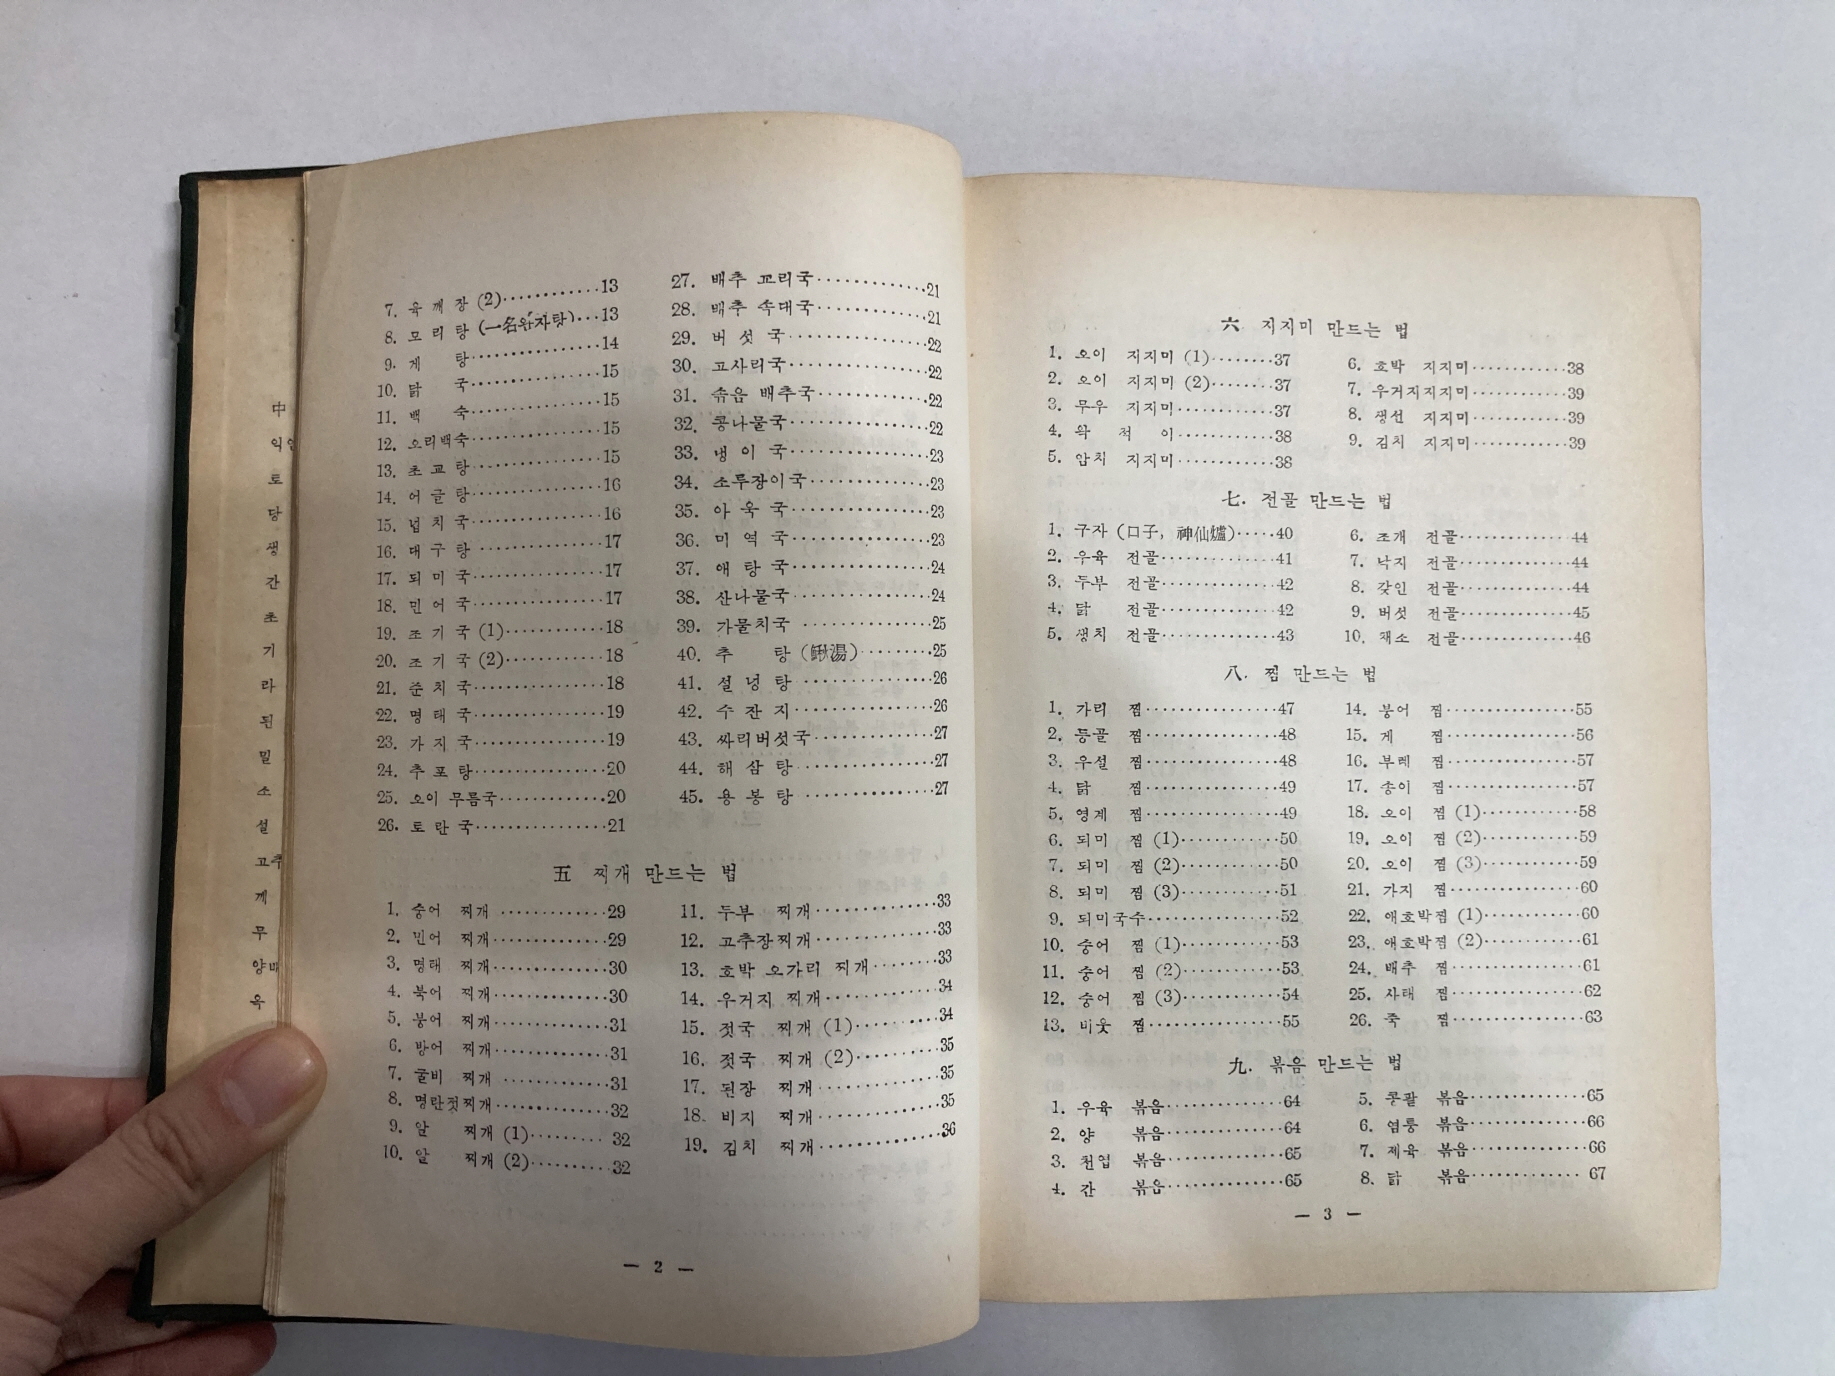 中
익
토
당
생
간
초
기
라
된
밀
소
설
고추
깨
무
양배
육
7. 육 깨 장 (2)············13
8. 모 리 탕 (一名완자탕)···13
9. 게 탕················14
10. 닭 국················15
11. 백 숙················15
12. 오리백숙················15
13. 초 교 탕················15
14. 어 글 탕················16
15. 넙 치 국················16
16. 대 구 탕················17
17. 되 미 국················17
18. 민 어 국················17
19. 조 기 국 (1)············18
20. 조 기 국 (2)············18
21. 준 치 국················18
22. 명 태 국················19
23. 가 지 국················19
24. 추 포 탕················20
25. 오이 무름국·············20
26. 토 란 국················21
27. 배추 꼬리국·············21
28. 배추 속대국·············21
29. 버 섯 국················22
30. 고사리국················22
31. 솎음 배추국·············22
32. 콩나물국················22
33. 냉 이 국················23
34. 소루장이국··············23
35. 아 욱 국················23
36. 미 역 국················23
37. 애 탕 국················24
38. 산나물국················24
39. 가물치국················25
40. 추 탕 (鰍湯)·········25
41. 설 넝 탕················26
42. 수 잔 지················26
43. 싸리버섯국··············27
44. 해 삼 탕················27
45. 용 봉 탕················27
五 찌개 만드는 법
1. 숭어 찌개·············29
2. 민어 찌개·············29
3. 명태 찌개·············30
4. 북어 찌개·············30
5. 붕어 찌개·············31
6. 방어 찌개·············31
7. 굴비 찌개·············31
8. 명란젓찌개·············32
9. 알 찌개 (1)·········32
10. 알 찌개 (2)·········32
11. 두부 찌개············33
12. 고추장찌개············33
13. 호박 오가리 찌개·······33
14. 우거지 찌개···········34
15. 젓국 찌개 (1)········34
16. 젓국 찌개 (2)········35
17. 된장 찌개············35
18. 비지 찌개············35
19. 김치 찌개············36
— 2 —
六 지지미 만드는 법
1. 오이 지지미 (1)········37
2. 오이 지지미 (2)········37
3. 무우 지지미············37
4. 왁 적 이············38
5. 암치 지지미············38
6. 호박 지지미············38
7. 우거지지지미············39
8. 생선 지지미············39
9. 김치 지지미············39
七. 전골 만드는 법
1. 구자 (口子, 神仙爐)·····40
2. 우육 전골··············41
3. 두부 전골··············42
4. 닭 전골··············42
5. 생치 전골··············43
6. 조개 전골··············44
7. 낙지 전골··············44
8. 갖인 전골··············44
9. 버섯 전골··············45
10. 채소 전골··············46
八. 찜 만드는 법
1. 가리 찜················47
2. 등골 찜················48
3. 우설 찜················48
4. 닭 찜················49
5. 영계 찜················49
6. 되미 찜 (1)············50
7. 되미 찜 (2)············50
8. 되미 찜 (3)············51
9. 되미국수················52
10. 숭어 찜 (1)············53
11. 숭어 찜 (2)············53
12. 숭어 찜 (3)············54
13. 비웃 찜················55
14. 붕어 찜················55
15. 게 찜················56
16. 부레 찜················57
17. 송이 찜················57
18. 오이 찜 (1)············58
19. 오이 찜 (2)············59
20. 오이 찜 (3)············59
21. 가지 찜················60
22. 애호박찜 (1)············60
23. 애호박찜 (2)············61
24. 배추 찜················61
25. 사태 찜················62
26. 죽 찜················63
九. 볶음 만드는 법
1. 우육 볶음··············64
2. 양 볶음··············64
3. 천엽 볶음··············65
4. 간 볶음··············65
5. 콩팥 볶음··············65
6. 염통 볶음··············66
7. 제육 볶음··············66
8. 닭 볶음··············67
— 3 —